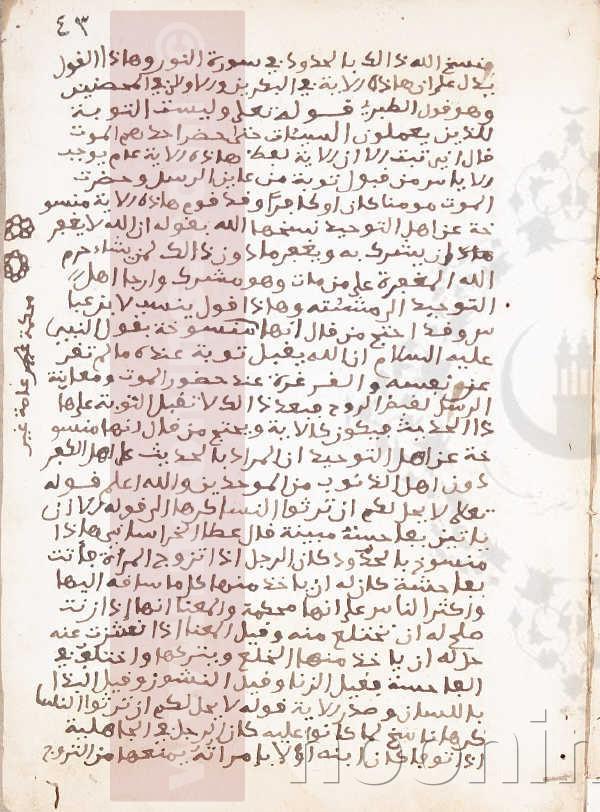 ٤٣
ونسخ الله ذالك بالحدود في سورة النور وهاذا القول
يدل على ان هاذه الاية في البكرين والاولى في المحصنين
وهو قول الطبري قوله تعلى وليست التوبة
للذين يعملون السيئات حتى اذا حضر احدهم الموت
قال اني تبت الان الاية لفظ هاذه الاية عام يوجب
الاياس من قبول توبة من عاين الرسل وحضره
الموت مومنا كان او كافرا وقد قال قوم هاذه الاية منسو
خة عن اهل التوحيد نسخها الله بقوله ان الله لا يغفر
ان يشرك به ويغفر ما دون ذالك لمن يشاء فحرم
الله المغفرة على من مات وهو مشرك وارجا اهل
التوحيد الى مشيئته وهاذا قول ينسب لابن عبا
س وقد احتج من قال انها منسوخة بقول النبي
عليه السلام ان الله يقبل توبة عبده ما لم تغر
غر نفسه والغرغرة عند حضور الموت ومعاينة
الرسل لقبض الروح فبعد ذالك لا تقبل التوبة على ها
ذا الحديث فيكون كالاية ويحتج من قال انها منسو
خة عن اهل التوحيد ان المراد بالحديث على اهل الكفر
دون اهل الذنوب من الموحدين والله اعلم قوله
تعلى لا يحل لكم ان ترثوا النساء كرها الى قوله الا ان
ياتين بفاحشة مبينة قال عطا الخراساني هاذا
منسوخ بالحدود كان الرجل اذا تزوج المراة فاتت
بفاحشة كان له ان ياخذ منها كل ما ساقه اليها
واكثر الناس على انها محكمة والمعنا انها اذا زنت
صلح له ان تختلع منه وقيل المعنا اذا نشزت عنه
حل له ان ياخذ منها الخلع ويتركها واختلف في
الفاحشة فقيل الزنا وقيل النشوز وقيل البذا
باللسان وصدر الاية قوله لا يحل لكم ان ترثوا النسا
كرها ناسخ لما كانوا عليه كان الرجل في الجاهلية
اذا توفي كان ابنه اولا بامراته يمنعها من التزوج
محكمة عامة غير
noorlib